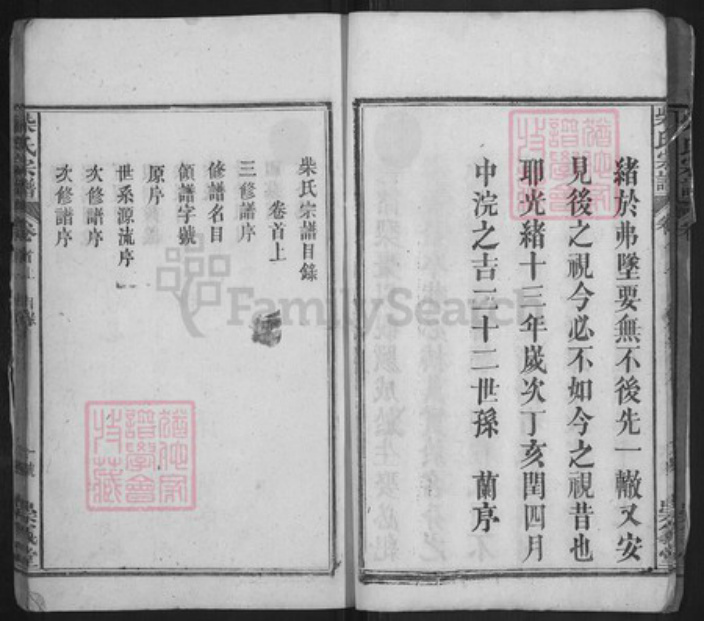 緒於弗墜要無不後先一轍又安
見後之視今必不如今之視昔也
耶光緒十三年歲次丁亥閏四月
中浣之吉三十二世孫　蘭序
柴氏宗譜目錄
卷首上
三修譜序
修譜名目
領譜字號
原序
世系源流序
次修譜序
次修譜序
柴氏宗譜
FamilySearch